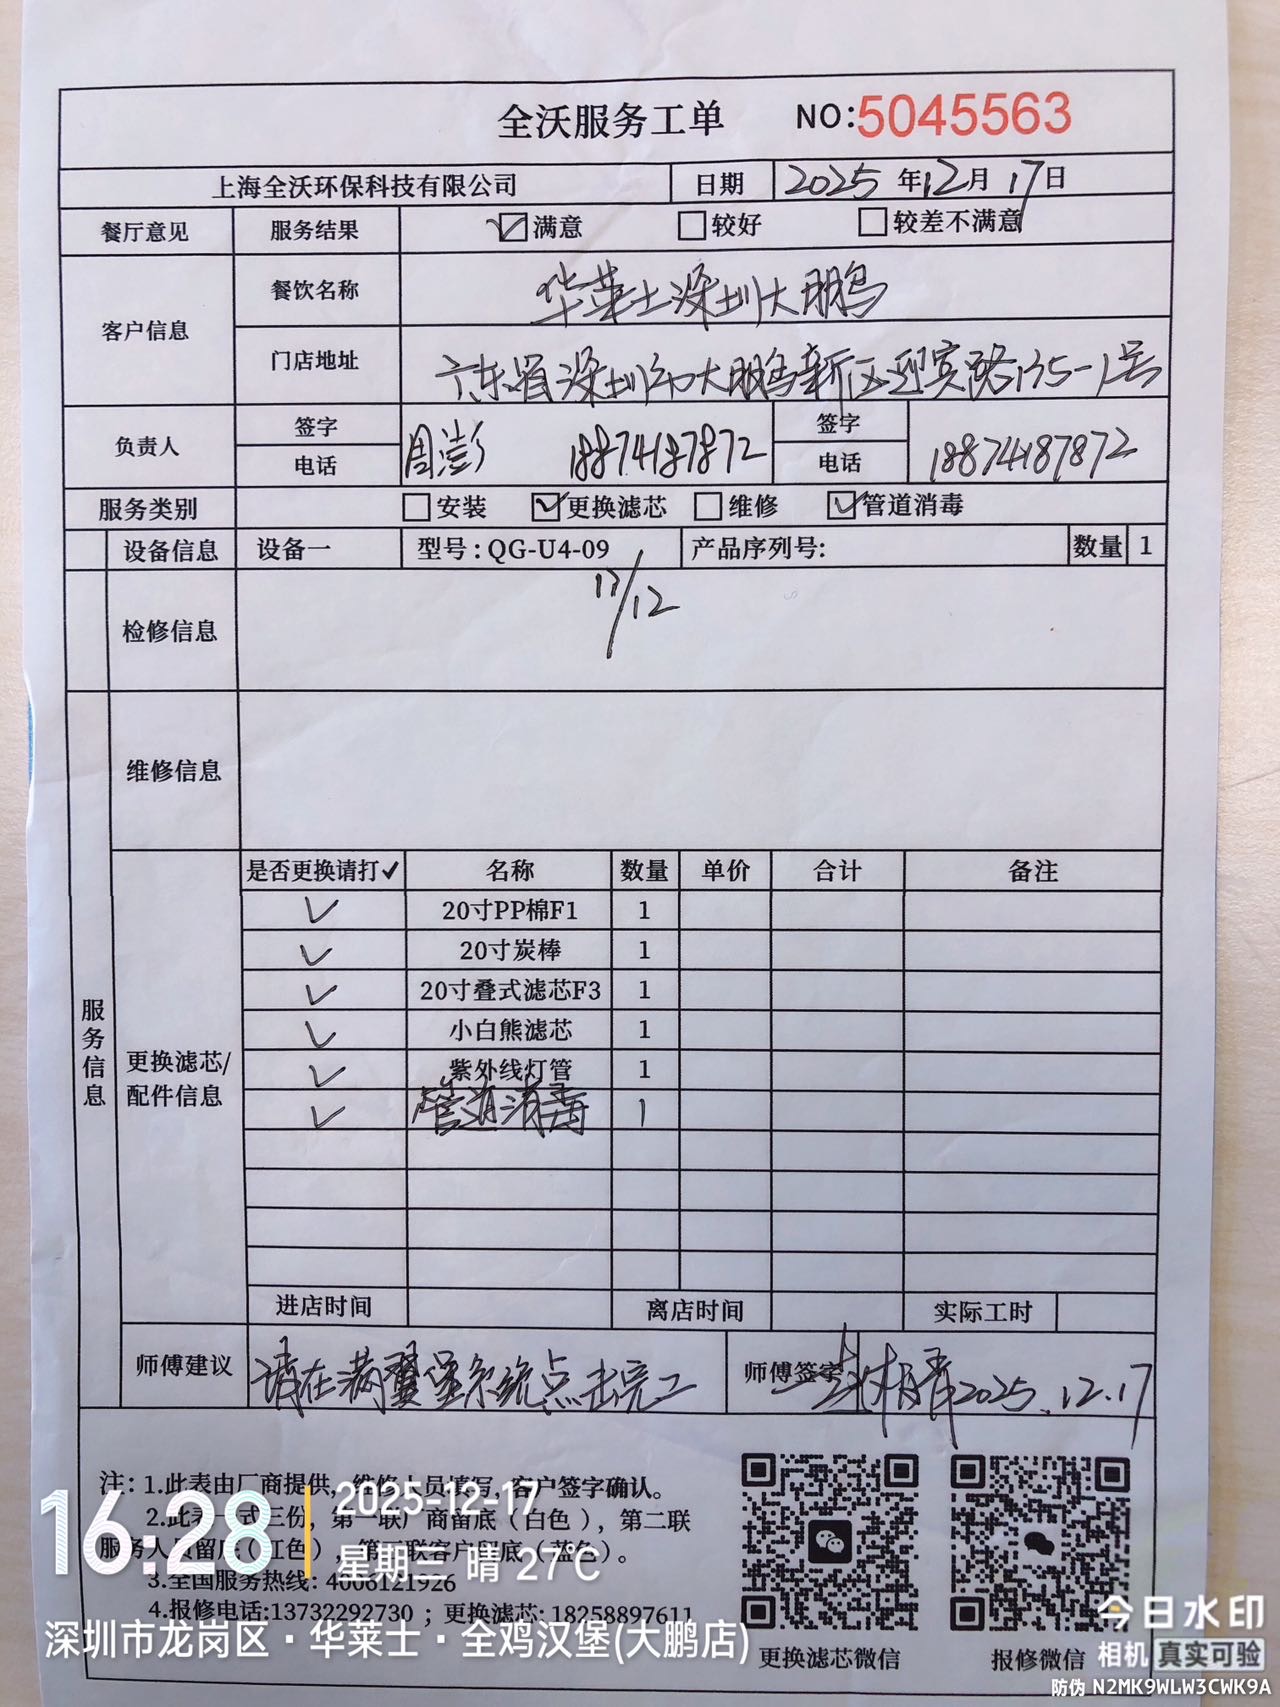 全沃服务工单 NO:5045563
上海全沃环保科技有限公司 日期 2025 年 12 月 17 日
餐厅意见 服务结果 ☑满意 □较好 □较差不满意
客户信息 餐饮名称 华莱士深圳大鹏
门店地址 广东省深圳市大鹏新区迎宾路135-1号
负责人 签字 周澎 签字
电话 18874187872 电话 18874187872
服务类别 □安装 ☑更换滤芯 □维修 ☑管道消毒
设备信息 设备一 型号:QG-U4-09 产品序列号: 数量 1
检修信息 17/12
维修信息
服务信息
更换滤芯/
配件信息
是否更换请打✓ 名称 数量 单价 合计 备注
✓ 20寸PP棉F1 1
✓ 20寸炭棒 1
✓ 20寸叠式滤芯F3 1
✓ 小白熊滤芯 1
✓ 紫外线灯管 1
✓ 管道消毒 1
进店时间 离店时间 实际工时
师傅建议 请在满翼堡系统点击完工 师傅签字 2025.12.17
注: 1.此表由厂商提供, 维修人员填写, 客户签字确认。
2.此表一式三份, 第一联厂商留底(白色), 第二联
服务人员留底(红色), 第三联客户留底(蓝色)。
3.全国服务热线: 4008121926
4.报修电话:13732292730 ; 更换滤芯: 18258897611
更换滤芯微信 报修微信
16:28 2025-12-17
星期三 晴 27℃
深圳市龙岗区·华莱士·全鸡汉堡(大鹏店)
今日水印
相机 真实可验
防伪 N2MK9WLW3CWK9A